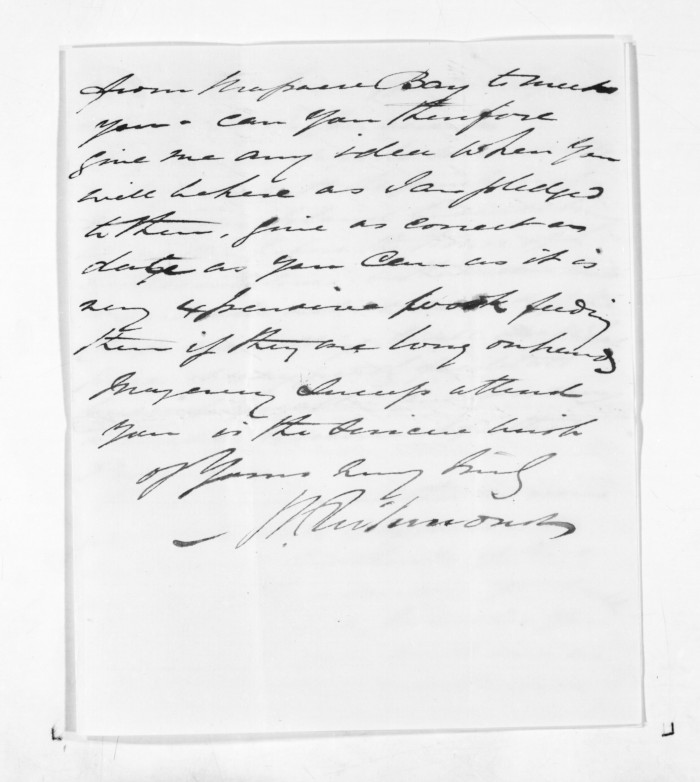 from Massacre Bay to meet
you. can you therefore
give me any idea when you
will be here as I am pledged
to them, give as correct a
date as you can as it is
very expensive work feeding
them if they are long on hand
May every success attend
you is the sincere wish
of Yours very truly
Richmond